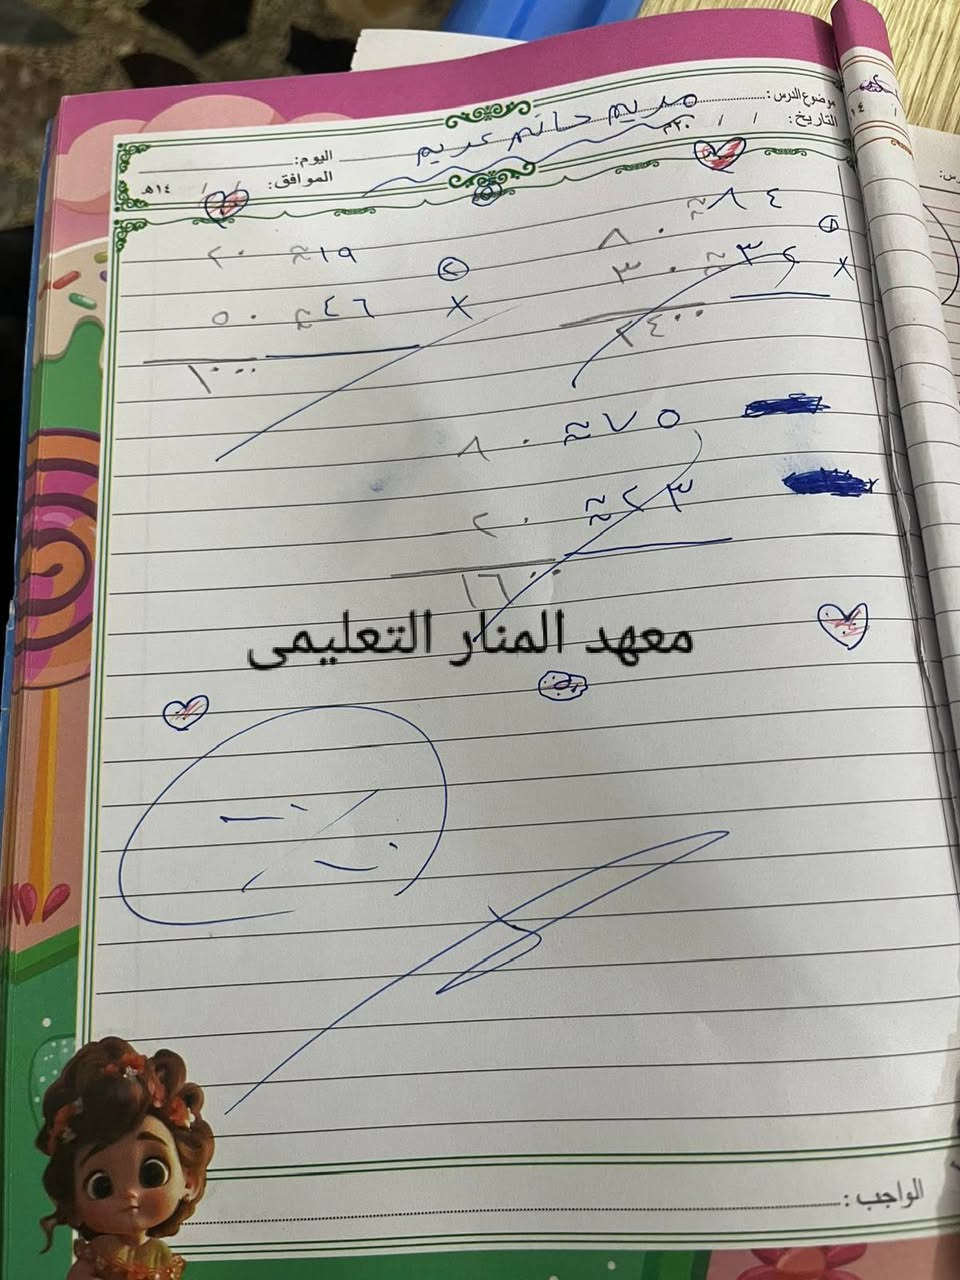 موضوع الدرس: مريم حاتم كريم
التاريخ: / / ٢٠م
اليوم:
الموافق: / / ١٤هـ
① ٨٤ ≈ ٨٠
× ٣٤ ≈ ٣٠
٢٤٠٠
② ١٩ ≈ ٢٠
× ٤٦ ≈ ٥٠
١٠٠٠
٧٥ ≈ ٨٠
٢٣ ≈ ٢٠
١٦٠٠
معهد المنار التعليمى
الواجب: